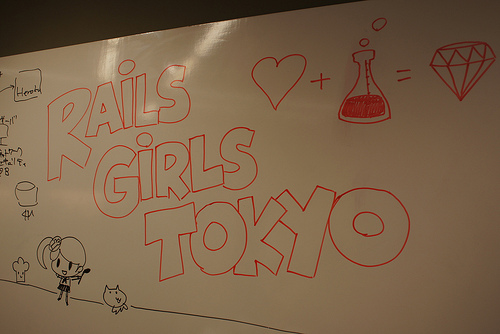 RAiLS
GiRLS
TOKYO
+
=
Heroku